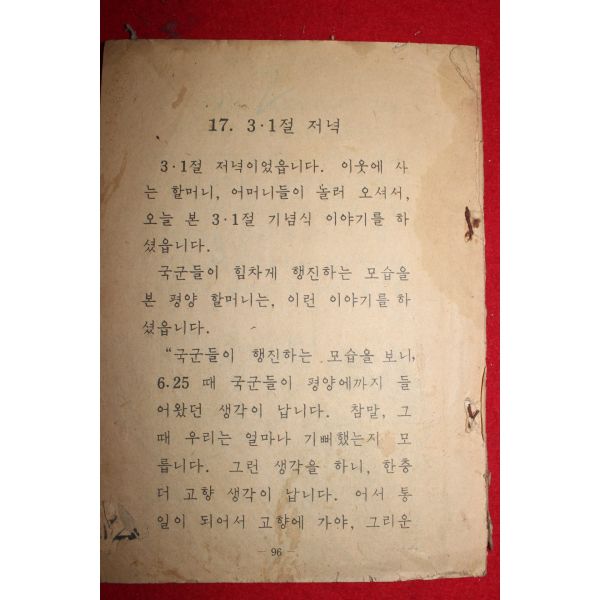 17. 3·1절 저녁
3·1절 저녁이었읍니다. 이웃에 사
는 할머니, 어머니들이 놀러 오셔서,
오늘 본 3·1절 기념식 이야기를 하
셨읍니다.
국군들이 힘차게 행진하는 모습을
본 평양 할머니는, 이런 이야기를 하
셨읍니다.
“국군들이 행진하는 모습을 보니,
6.25 때 국군들이 평양에까지 들
어왔던 생각이 납니다. 참말, 그
때 우리는 얼마나 기뻐했는지 모
릅니다. 그런 생각을 하니, 한층
더 고향 생각이 납니다. 어서 통
일이 되어서 고향에 가야, 그리운
— 96 —